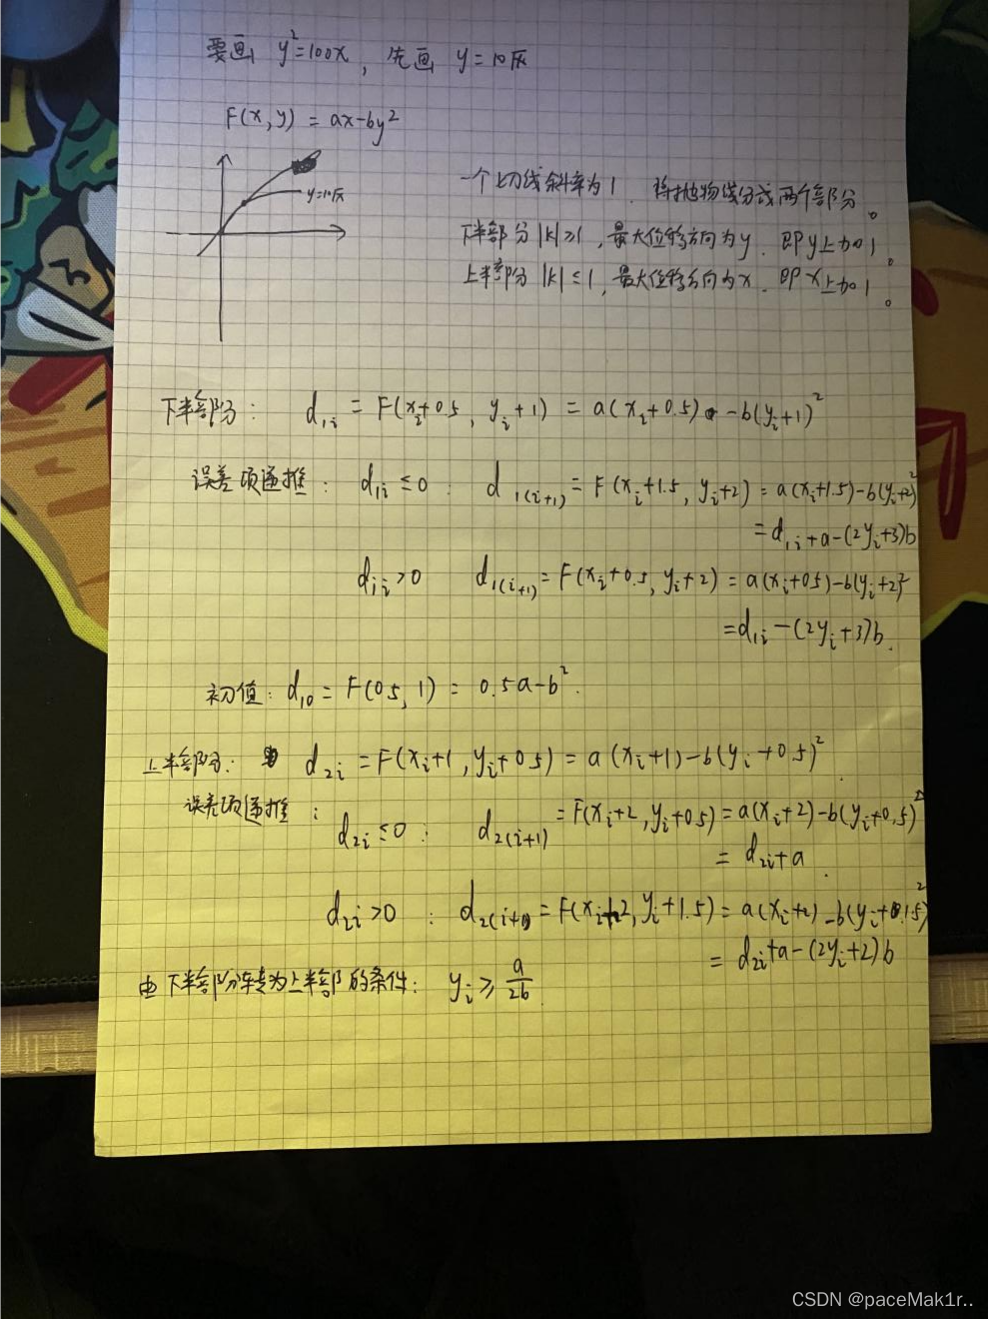 要画 y²=100x，先画 y=10√x
F(x,y) = ax-by²
y=10√x
一个切线斜率为1. 将抛物线分成两个部分。
下半部分|k|≥1，最大位移方向为y. 即y上加1。
上半部分|k|≤1，最大位移方向为x. 即x上加1。
下半部分： d₁ᵢ = F(xᵢ+0.5, yᵢ+1) = a(xᵢ+0.5) -b(yᵢ+1)²
误差项递推： d₁ᵢ≤0： d₁₍ᵢ₊₁₎= F(xᵢ+1.5, yᵢ+2) = a(xᵢ+1.5)-b(yᵢ+2)²
=d₁ᵢ+a-(2yᵢ+3)b
d₁ᵢ>0 d₁₍ᵢ₊₁₎=F(xᵢ+0.5, yᵢ+2) = a(xᵢ+0.5)-b(yᵢ+2)²
=d₁ᵢ-(2yᵢ+3)b.
初值：d₁₀ = F(0.5, 1) = 0.5a-b².
上半部分： d₂ᵢ =F(xᵢ+1, yᵢ+0.5) = a(xᵢ+1)-b(yᵢ+0.5)².
误差项递推：
d₂ᵢ≤0： d₂₍ᵢ₊₁₎ = F(xᵢ+2, yᵢ+0.5) = a(xᵢ+2)-b(yᵢ+0.5)²
= d₂ᵢ+a.
d₂ᵢ>0 ： d₂₍ᵢ₊₁₎ = F(xᵢ+2, yᵢ+1.5) = a(xᵢ+2)-b(yᵢ+1.5)²
= d₂ᵢ+a-(2yᵢ+2)b
由下半部分转为上半部的条件： yᵢ≥a/2b.
CSDN @paceMak1r..